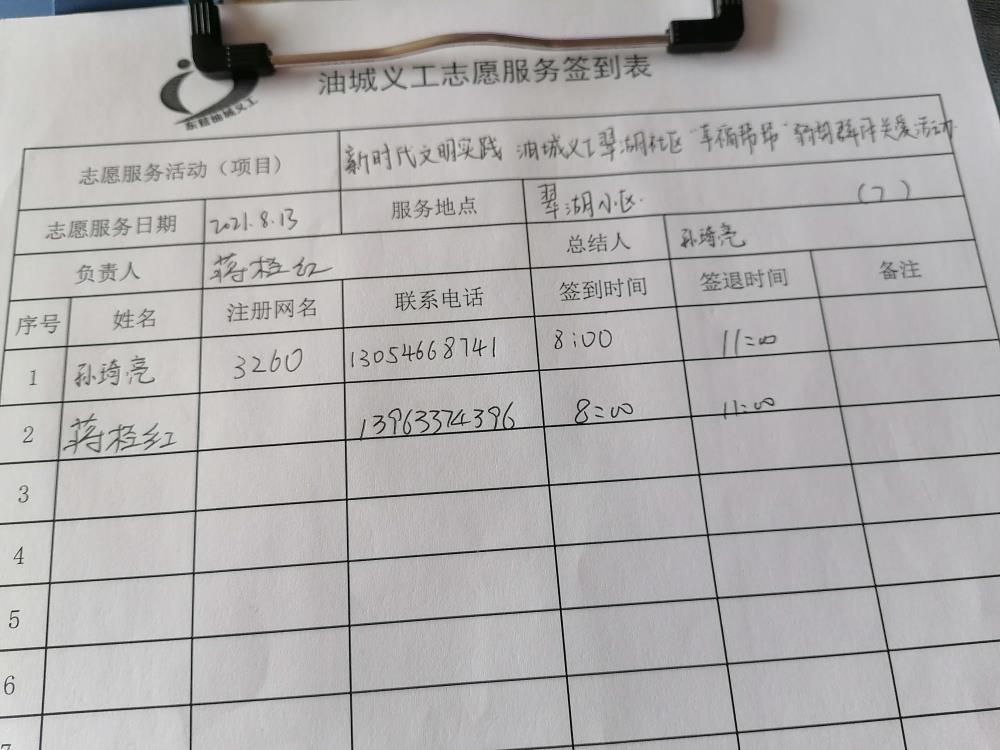 油城义工志愿服务签到表
东营油城义工
志愿服务活动（项目） 新时代文明实践 油城义工翠湖社区"幸福帮帮"弱势群体关爱活动
志愿服务日期 2021.8.13 服务地点 翠湖小区 (7)
负责人 蒋桂红 总结人 孙琦亮
序号 姓名 注册网名 联系电话 签到时间 签退时间 备注
1 孙琦亮 3260 13054668741 8:00 11:00
2 蒋桂红 13963374396 8:00 11:00
3
4
5
6
7